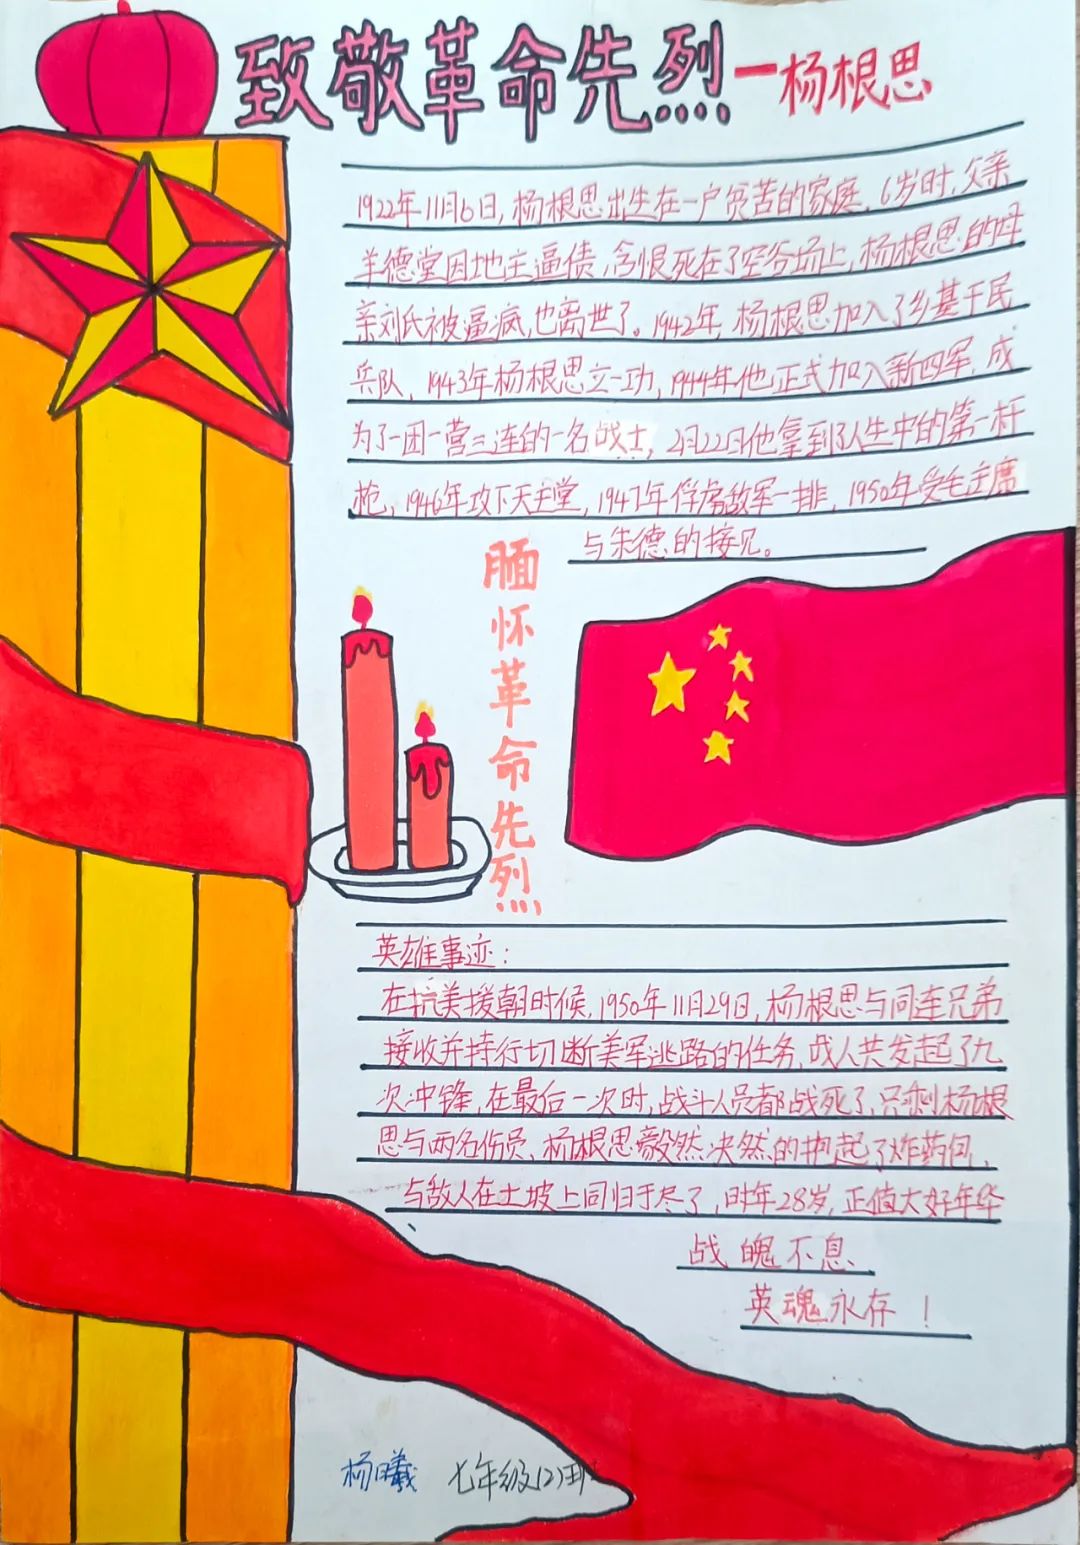 致敬革命先烈一杨根思
1922年11月6日,杨根思出生在一户贫苦的家庭,6岁时,父亲
羊德堂因地主逼债,含恨死在了空谷场上,杨根思的母
亲刘氏被逼疯,也离世了。1942年,杨根思加入了乡基干民
兵队,1943年杨根思立一功,1944年他正式加入新四军,成
为了一团一营三连的一名战士,2月22日他拿到了人生中的第一杆
枪,1946年攻下天主堂,1947年俘虏敌军一排,1950年受毛主席
与朱德的接见。
缅怀革命先烈
英雄事迹:
在抗美援朝时候,1950年11月29日,杨根思与同连兄弟
接收并持行切断美军逃路的任务,战人共发起了九
次冲锋,在最后一次时,战斗人员都战死了,只剩杨根
思与两名伤员,杨根思毅然决然的抱起了炸药包,
与敌人在土坡上同归于尽了,时年28岁,正值大好年华
战魄不息
英魂永存!
杨曦 七年级(2)班